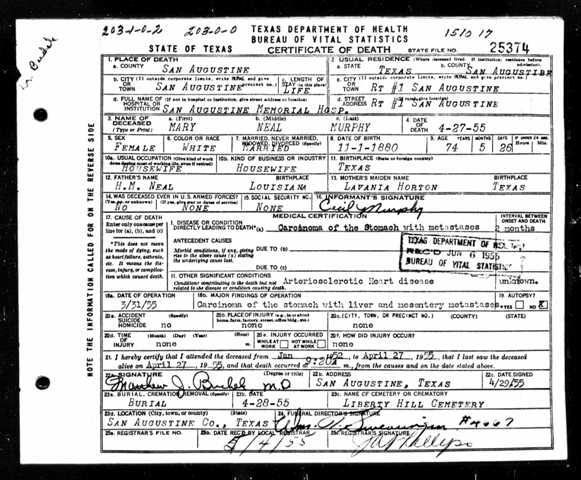 203-1-0-2 203-0-0 TEXAS DEPARTMENT OF HEALTH 15/0 17
BUREAU OF VITAL STATISTICS
STATE OF TEXAS CERTIFICATE OF DEATH STATE FILE NO. 25374
1. PLACE OF DEATH 2. USUAL RESIDENCE (Where deceased lived. If institution: residence before admission)
a. COUNTY SAN AUGUSTINE a. STATE TEXAS b. COUNTY SAN AUGUSTINE
b. CITY (If outside corporate limits, write RURAL and give precinct no.) c. LENGTH OF STAY (in this place) c. CITY (If outside corporate limits, write RURAL and give precinct no.)
OR TOWN SAN AUGUSTINE LIFE OR TOWN RT #1 SAN AUGUSTINE
d. FULL NAME OF (If not in hospital or institution, give street address or location) d. STREET (If rural, give location)
HOSPITAL OR INSTITUTION SAN AUGUSTINE MEMORIAL HOSP. ADDRESS RT #1 SAN AUGUSTINE
3. NAME OF DECEASED a. (First) b. (Middle) c. (Last) 4. DATE OF DEATH
(Type or Print) MARY NEAL MURPHY 4-27-55
5. SEX 6. COLOR OR RACE 7. MARRIED, NEVER MARRIED, WIDOWED, DIVORCED (Specify) 8. DATE OF BIRTH 9. AGE
FEMALE WHITE MARRIED 11-1-1880 74 5 26
10a. USUAL OCCUPATION (Give kind of work done during most of working life, even if retired) 10b. KIND OF BUSINESS OR INDUSTRY 11. BIRTHPLACE (State or foreign country)
HOUSEWIFE HOUSEWIFE TEXAS
12. FATHER'S NAME BIRTHPLACE 13. MOTHER'S MAIDEN NAME BIRTHPLACE
H.M. NEAL LOUISIANA LAVANIA HORTON TEXAS
14. WAS DECEASED EVER IN U.S. ARMED FORCES? 15. SOCIAL SECURITY NO. 16. INFORMANT'S SIGNATURE
NO NONE NONE Cecil Murphy
17. CAUSE OF DEATH MEDICAL CERTIFICATION INTERVAL BETWEEN ONSET AND DEATH
Enter only one cause per line for (a), (b), and (c)
I. DISEASE OR CONDITION DIRECTLY LEADING TO DEATH* (a) Carcinoma of the Stomach with metastases 2 months
*This does not mean the mode of dying, such as heart failure, asthenia, etc. It means the disease, injury, or complication which caused death.
ANTECEDENT CAUSES
Morbid conditions, if any, giving rise to the above cause (a) stating the underlying cause last.
DUE TO (b)
DUE TO (c)
TEXAS DEPARTMENT OF HEALTH
REC'D JUN 6 1955
BUREAU OF VITAL STATISTICS
II. OTHER SIGNIFICANT CONDITIONS
Conditions contributing to the death but not related to the disease or condition causing death. Arteriosclerotic Heart disease unknown.
18a. DATE OF OPERATION 18b. MAJOR FINDINGS OF OPERATION 19. AUTOPSY?
3/31/55 Carcinoma of the stomach with liver and mesentery metastases
20a. ACCIDENT SUICIDE HOMICIDE 20b. PLACE OF INJURY 20c. (CITY, TOWN, OR PRECINCT NO.) (COUNTY) (STATE)
no none none
20d. TIME OF INJURY (Month) (Day) (Year) (Hour) 20e. INJURY OCCURRED WHILE AT WORK NOT WHILE AT WORK 20f. HOW DID INJURY OCCUR?
none none
21. I hereby certify that I attended the deceased from Jan 1952 to April 27 1955, that I last saw the deceased
alive on April 27 1955, and that death occurred at m., from the causes and on the date stated above.
22a. SIGNATURE (Degree or title) 22b. ADDRESS 22c. DATE SIGNED
M.D SAN AUGUSTINE, TEXAS 4/29/55
23a. BURIAL, CREMATION, REMOVAL (Specify) 23b. DATE 23c. NAME OF CEMETERY OR CREMATORY
BURIAL 4-28-55 LIBERTY HILL CEMETERY
23d. LOCATION (City, town, or county) (State) 24. FUNERAL DIRECTOR'S SIGNATURE
SAN AUGUSTINE CO., TEXAS
25a. REGISTRAR'S FILE NO. 25b. DATE REC'D BY LOCAL REGISTRAR 25c. REGISTRAR'S SIGNATURE
5/4/55
NOTE THE INFORMATION CALLED FOR ON THE REVERSE SIDE